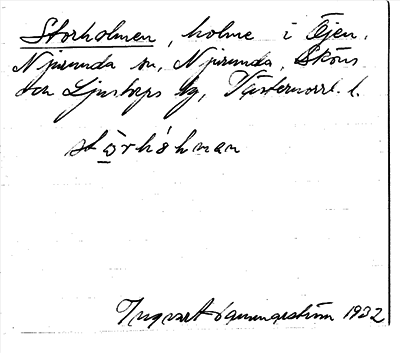 Storholmen, holme i Öjen,
Njurunda sn, Njurunda, Sköns
och Ljustorps tg, Västernorrl. l.
stòrhòlman
Ingvar 1932